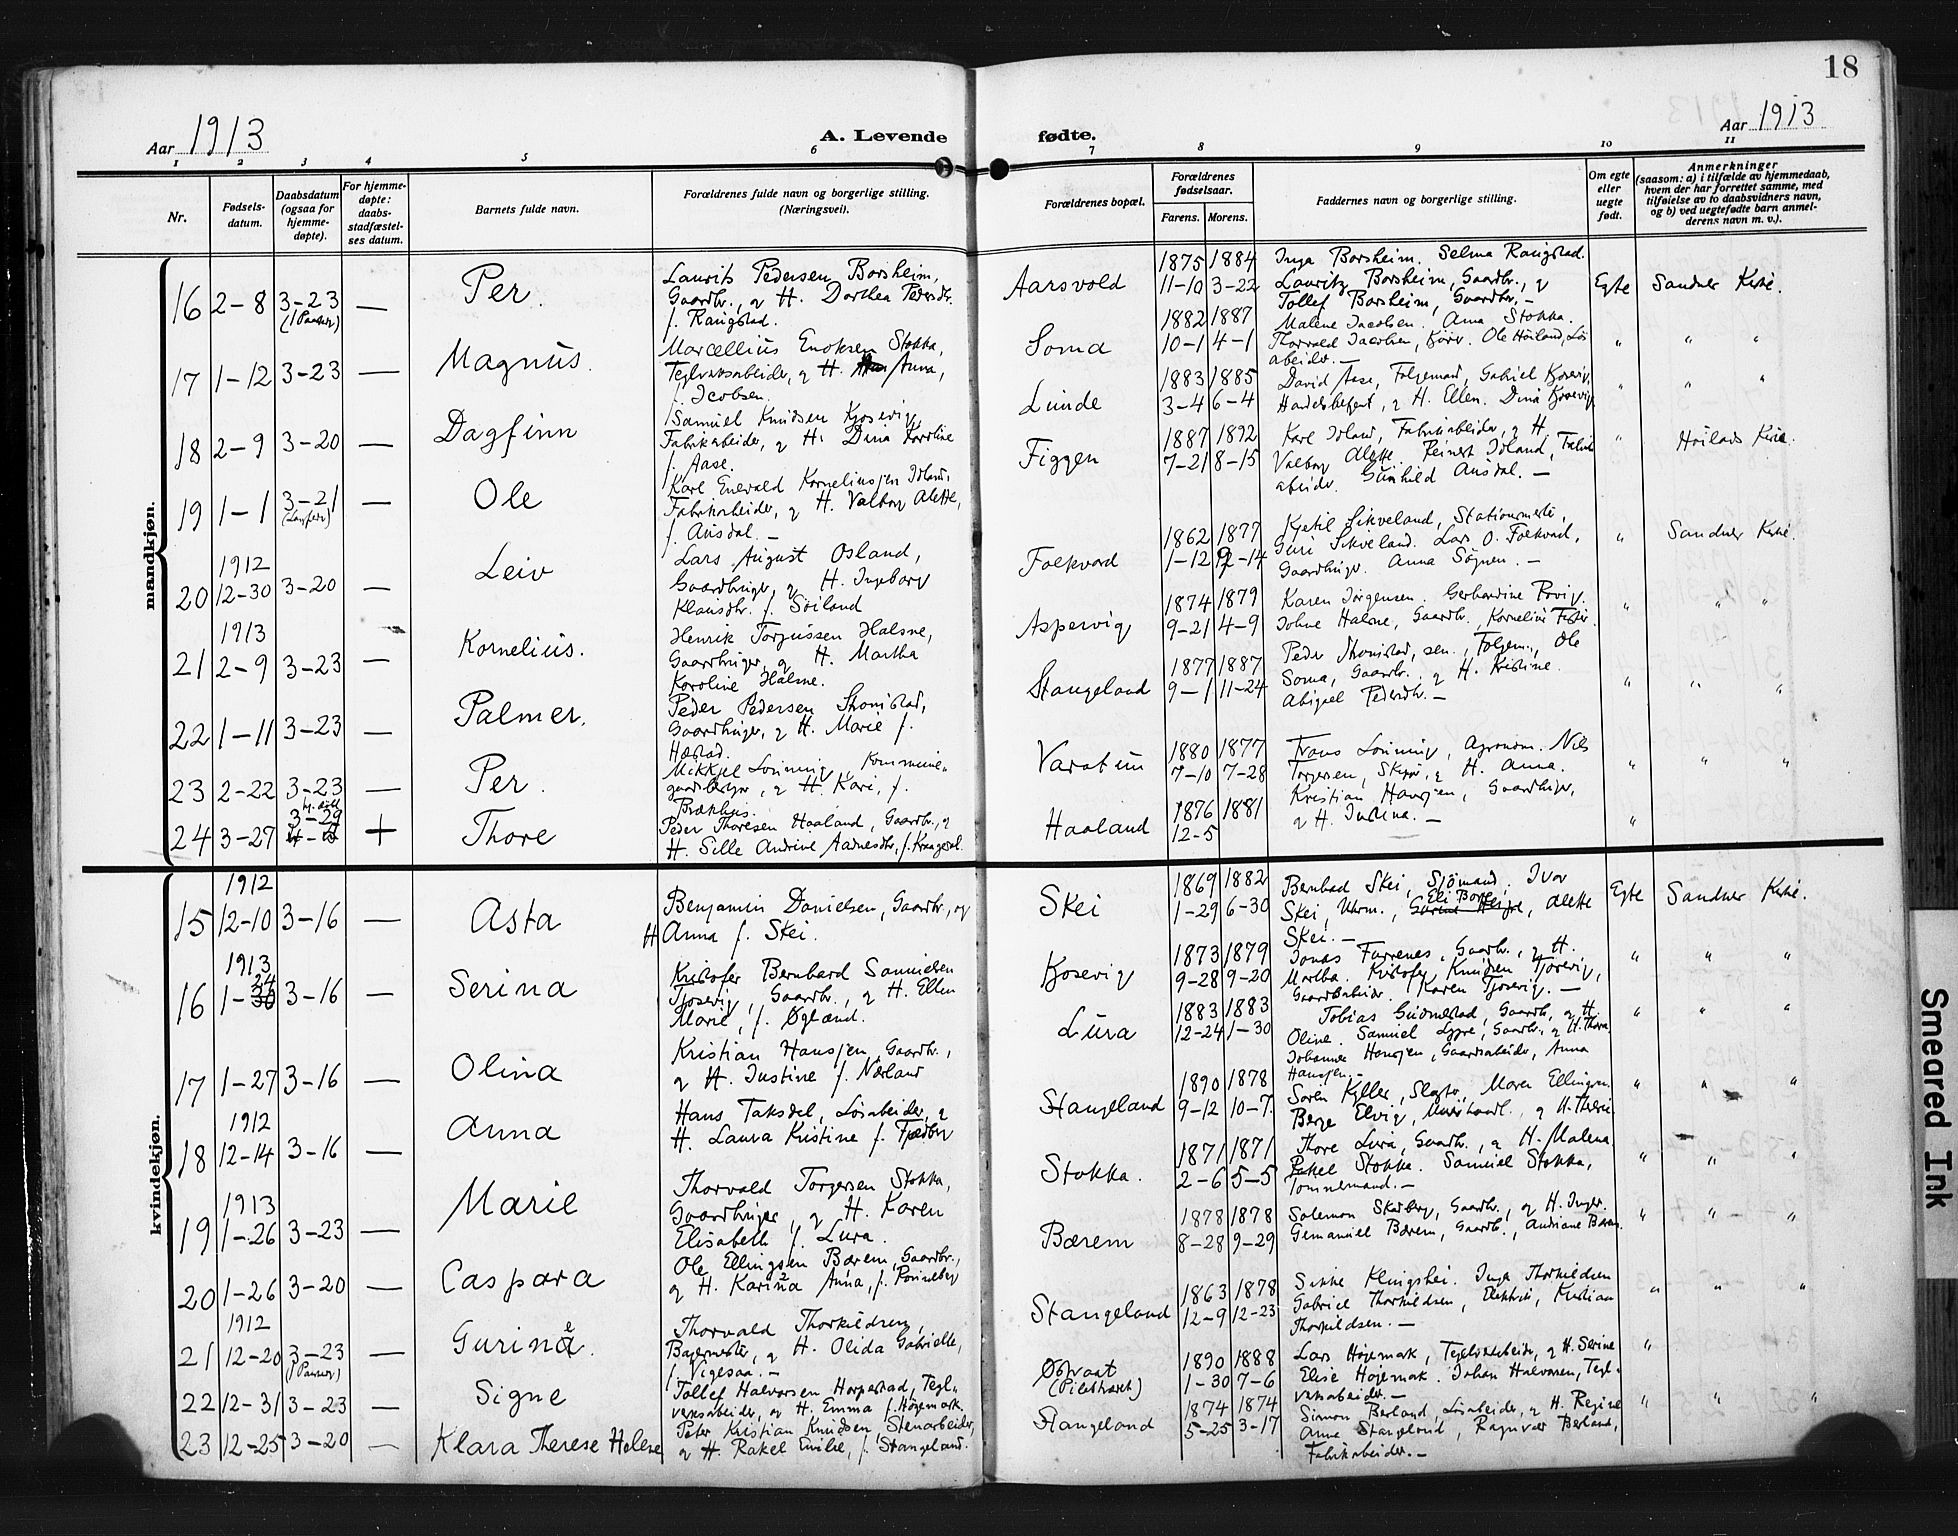 18
Aar 1913
A. Levende fødte.
Aar 1913
1 2 3 4 5 6 7 8 9 10 11
Nr.
Fødsels-
datum.
Daabsdatum
(ogsaa for
hjemme-
døpte).
For hjemme-
døpte:
daabs-
stadfæstel-
ses datum.
Barnets fulde navn.
Forældrenes fulde navn og borgerlige stilling.
(Næringsvei).
Forældrenes bopæl.
Forældrenes
fødselsaar.
Farens. Morens.
Faddernes navn og borgerlige stilling.
Om egte
eller
uegte
født.
Anmerkninger
(saasom: a) i tilfælde av hjemmedaab,
hvem der har forrettet samme, med
tilføielse av to daabsvidners navn,
og b) ved uegtefødte barn anmel-
derens navn m. v.).
mandkjøn.
16 2-8 3-23 — Per.
Laurits Pedersen Borsheim,
Gaardbr., og H. Dorthea Pedersdtr.
f. Rangstad.
Aarsvold
1875 1884
11-10 3-22
Inga Borsheim. Selma Rangstad.
Lauritz Borsheim, Gaardbr., og
Tollef Borsheim, Gaardbr. —
Egte
Sandnes Kirke.
17 1-12 3-23 — Magnus.
Marcellius Enoksen Stokka,
Teglverksarbeider, og H. Anna,
f. Jacobsen.
Soma
1882 1887
10-1 4-1
Malene Jacobsen. Anna Stokka.
Thorvald Jacobsen, Ole Høiland, Løs
arbeider. —
" " "
18 2-9 3-20 — Dagfinn
Samuel Knudsen Kjosevig,
Fabrikarbeider, og H. Dina Karoline
f. Aase.
Lunde
1883 1885
3-4 6-4
David Aase, Folgemand, Gabriel Kjosevig,
Handelsbetjent, og H. Ellen. Dina Kjosevig
" " "
19 1-1 3-21 — Ole
Karl Enevald Korneliusen Idland,
Fabrikarbeider, og H. Valborg Alette,
f. Ausdal. —
Figgen
1887 1892
7-21 8-15
Karl Idland, Fabrikarbeider, og H.
Valborg Alette. Reinert Idland, Fabrik
arbeider. Gunhild Ausdal. —
"
Høilands Kirke.
1912
20 12-30 3-20 — Leiv
Lars August Osland,
Gaardbruger, og H. Ingeborg
Klausdtr. f. Søiland
Folkvord
1862 1877
1-12 12-14
Kjetil Sikveland, Stationsmester,
Guri Sikveland. Lars O. Folkvord,
Gaardbruger. Anna Sognen. —
"
Sandnes Kirke.
1913
21 2-9 3-23 — Kornelius.
Henrik Torjussen Halsne,
Gaardbruger, og H. Martha
Karoline Halsne.
Aspervig
1874 1879
9-21 4-9
Karen Jørgensen. Gerhardine Rovig.
Johne Halsne, Gaardbr., Kornelius
" " "
22 1-11 3-23 — Palmer.
Peder Pedersen Skonistad,
Gaardbruger, og H. Marie f.
Hæstad.
Stangeland
1877 1887
9-1 11-24
Peder Skonistad, sen., Folgem., Ole
Soma, Gaardbr., og H. Kristine.
Abigael Pedersdtr. —
" " "
23 2-22 3-23 — Per.
Mikkjel Lonning, Kommune-
gaardsbestyr., og H. Kari, f.
Brækhus.
Varatun
1880 1877
7-10 7-28
Frans Lonning, Agronom. Nils
Torgersen, Skipr., og H. Anna.
" " "
24 3-27 3-29 + Thore
Peder Thoresen Haaland, Gaardbr., og
H. Sille Andrine Aadnesdtr., f. Kraagedal.
Haaland
1876 1881
12-5
Kristian Hansen, Gaardbruger,
og H. Justina. —
"
kvindekjøn.
1912
15 12-10 3-16 — Asta
Benjamin Danielsen, Gaardbr., og
H Anna f. Skei.
Skei
1869 1882
1-29 6-30
Bernhard Skei, Sjømand, Ivar
Skei, Uhrm., Eli Borge, Alette
Skei. —
Egte Sandnes Kirke.
1913
16 1-24 3-16 — Serina
Kristofer Bernhard Samuelsen
Tjosevig, Gaardbr., og H. Ellen
Marie, f. Øgland.
Kjosevig
1873 1879
9-28 9-20
Jonas Furenes, Gaardbr., og H.
Martha. Kristofer Knudsen Tjosevig,
Gaardarbeider. Karen Tjosevig. —
" " "
17 1-27 3-16 — Olina
Kristian Hansen, Gaardbr.,
og H. Justine f. Nærland
Lura
1883 1883
12-24 1-30
Tobias Gudmestad, Gaardbr., og H.
Oline. Samuel Lyse, Gaardbr., og H. Thora.
Johannes Hansen, Gaardsarbeider, Anna
Hansen. —
" " "
1912
18 12-14 3-16 — Anna
Hans Taksdal, Løsarbeider, og
H. Laura Kristine f. Fjedberg
Stangeland
1890 1878
9-12 10-7
Søren Kyller, Slagter, Maren Ellingsen.
Berge Elvig, Murerhandl., og H. Thea
" " "
1913
19 1-26 3-23 — Marie
Thorvald Torgersen Stokka,
Gaardbruger, og H. Karen
Elisabeth f. Lura.
Stokka.
1871 1871
2-6 5-5
Thore Lura, Gaardbr., og H. Malena.
Rakel Stokka. Samuel Stokka,
Tømmermand. —
" " "
20 1-26 3-20 — Caspara
Ole Ellingsen Bærem, Gaardbr.,
og H. Karina Anna, f. Ronneberg
Bærem
1878 1878
8-28 9-29
Salemon Skadberg, Gaardbr., og H. Inger.
Gemaniel Bærem, Gaardbr., Andriane Bærem.
" " "
1912
21 12-20 3-23 — Gurine.
Thorvald Thorkildsen,
Bagermester, og H. Olida Gabrielle,
f. Vigesaa. —
Stangeland
1863 1878
12-9 12-23
Sikke Klingshei. Inga Thorkildsen
Gabriel Thorkildsen, Elektrik, Kristian
Thorkildsen. —
" " "
22 12-31 3-23 — Signe
Tollef Halvorsen Horpestad, Tegl-
verksarbeider, og H. Emma f. Høgemark.
Østraat
1890 1888
1-30 7-6
Lars Høgemark, Teglverksarbeider, og H. Serine
Elise Høgemark. Johan Halvorsen, Tegl-
verksarbeider. —
"
23 12-25 3-20 — Klara Therese Helene
Peter Kristian Knudsen, Stenarbeider,
og H. Rakel Emilie, f. Stangeland.
Stangeland
1874 1874
5-25 3-17
Simon Berland, Løsarbeider, og H. Regine
Anne Stangeland, Ragnvar Berland,
Fabrikarbeider. —
" " "
Smeared Ink